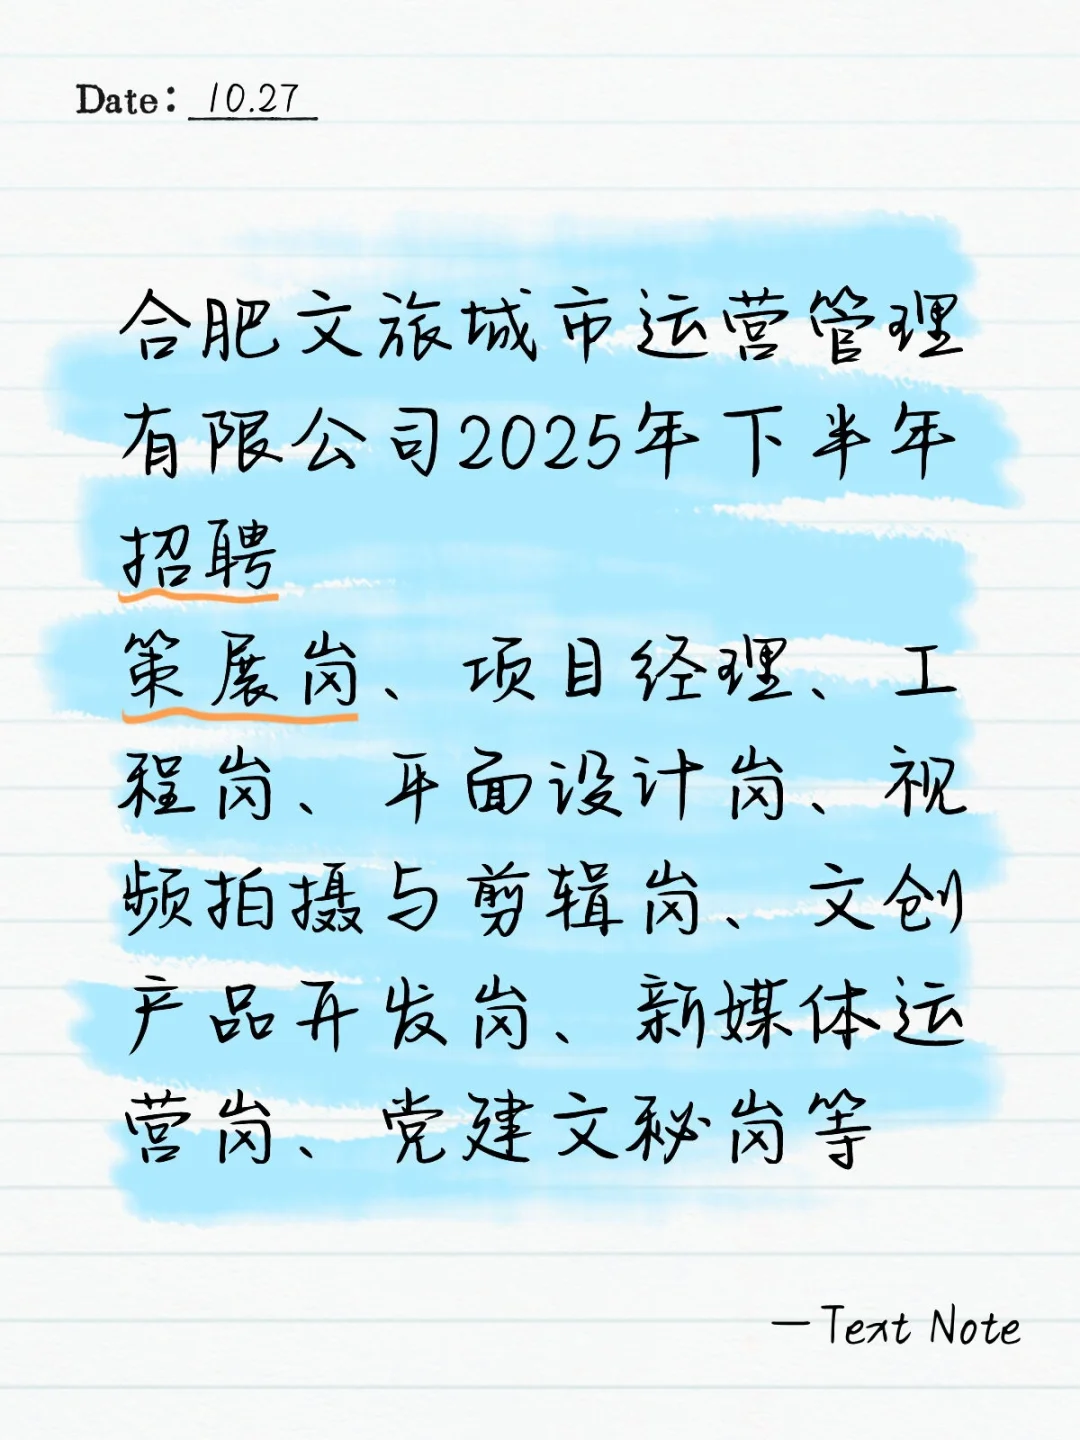 Date: 10.27
合肥文旅城市运营管理
有限公司2025年下半年
招聘
策展岗、项目经理、工
程岗、平面设计岗、视
频拍摄与剪辑岗、文创
产品开发岗、新媒体运
营岗、党建文秘岗等
—Text Note